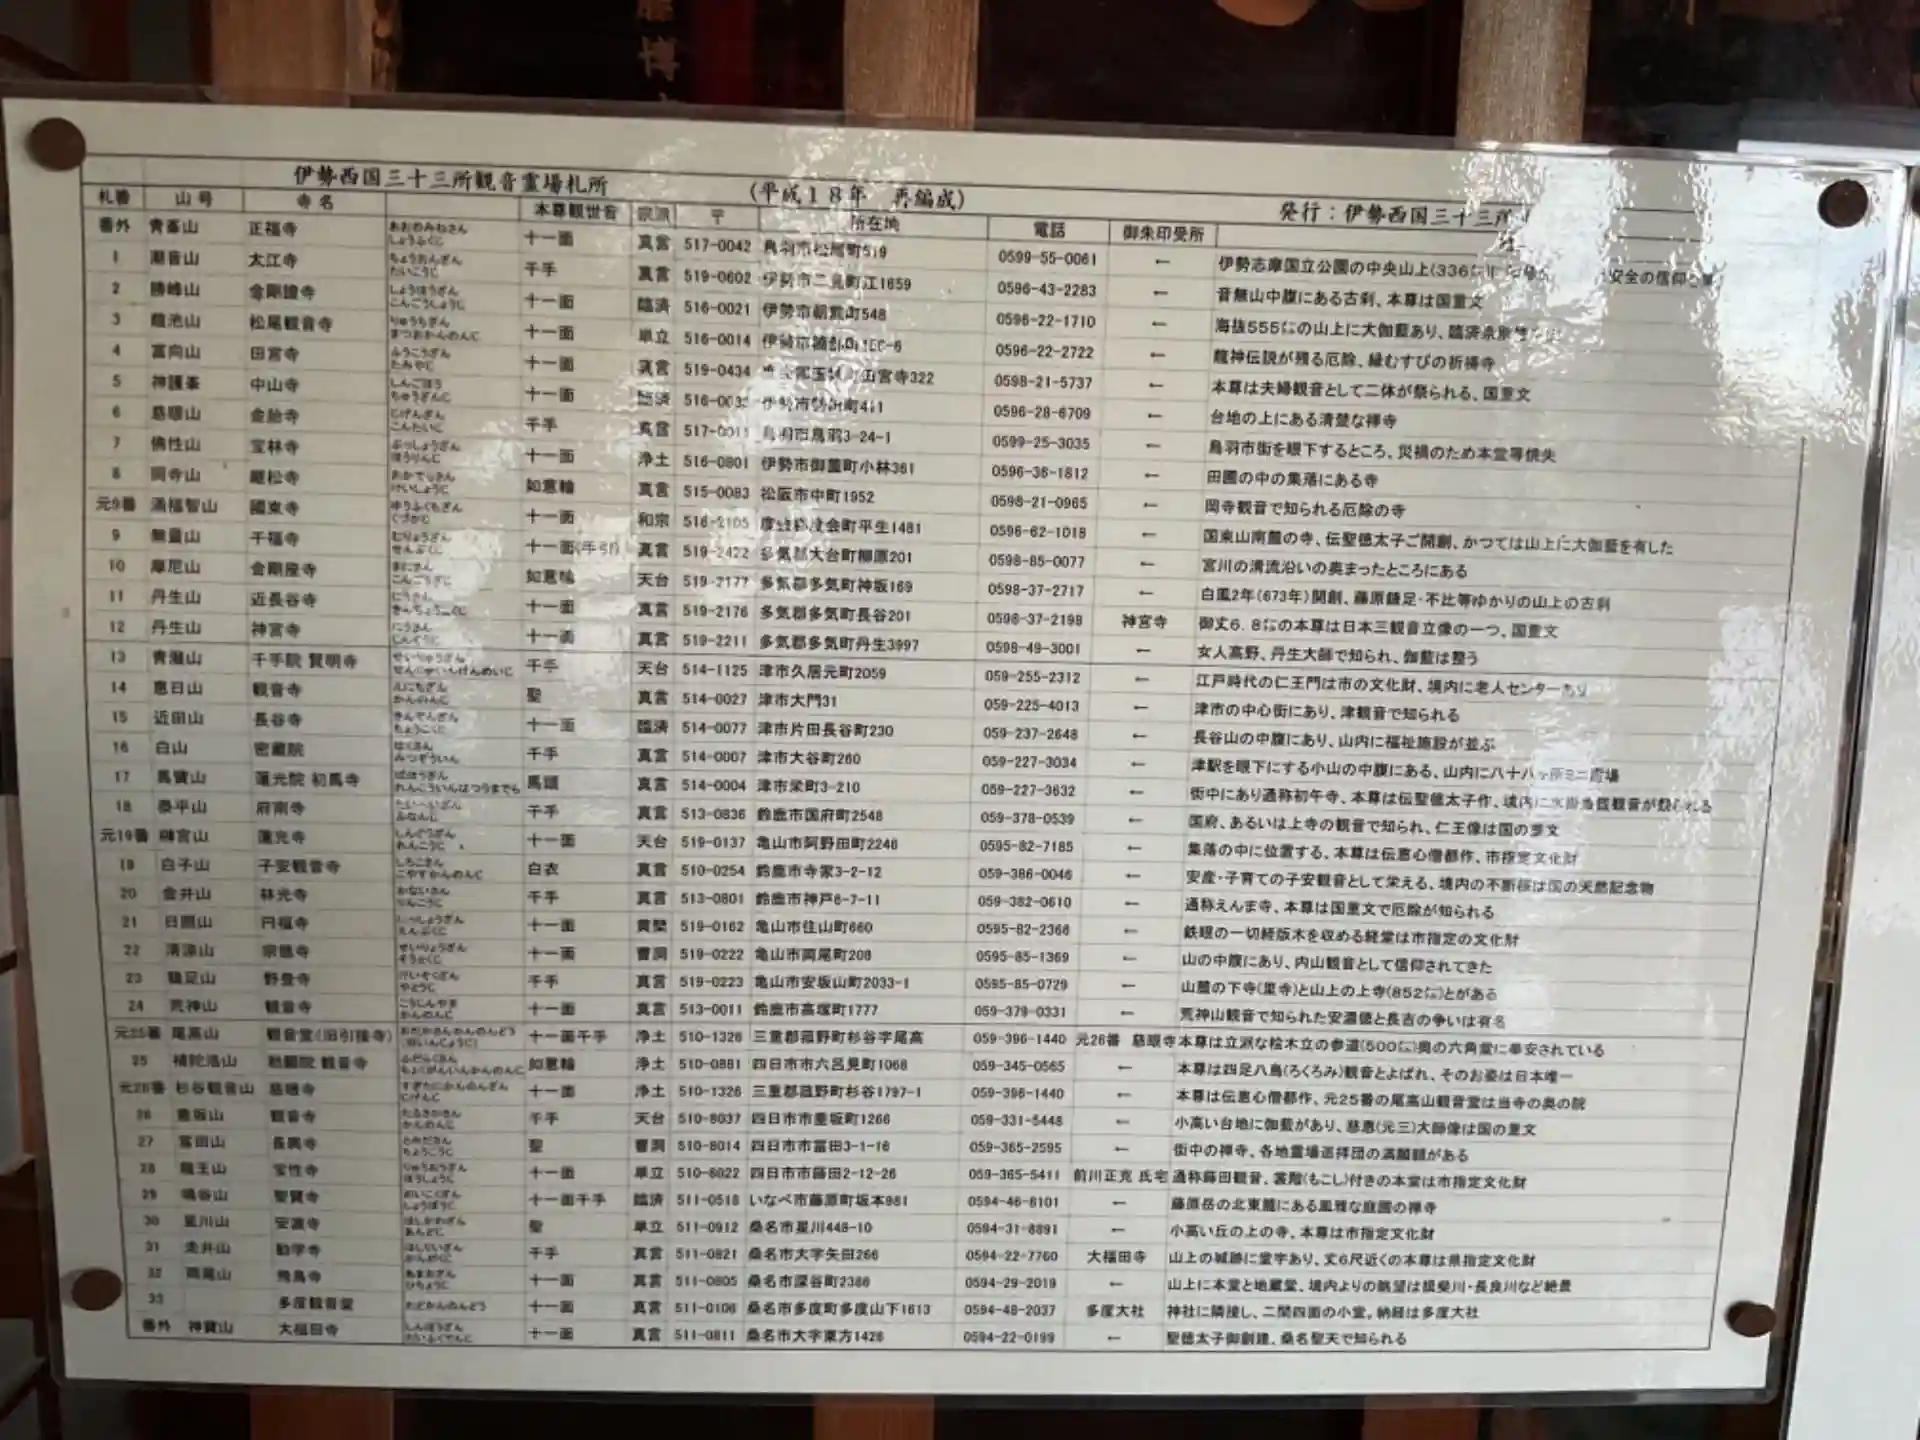 博
伊勢西国三十三所観音霊場札所 (平成18年 再編成) 発行：伊勢西国三十三所
札番 山号 寺名 本尊観世音 宗派 〒 所在地 電話 御朱印受所
番外 青峯山 正福寺 あおのみねさん しょうふくじ 十一面 真言 517-0042 鳥羽市松尾町519 0599-55-0061 ← 伊勢志摩国立公園の中央山上(336 安全の信仰
1 潮音山 太江寺 ちょうおんざん たいこうじ 千手 真言 519-0602 伊勢市二見町江1659 0596-43-2283 ← 音無山中腹にある古刹、本尊は国重文
2 勝峰山 金剛證寺 しょうほうざん こんごうしょうじ 十一面 臨済 516-0021 伊勢市朝熊町548 0596-22-1710 ← 海抜555㍍の山上に大伽藍あり、臨済
3 龍池山 松尾観音寺 りゅうちざん まつおかんのんじ 十一面 単立 516-0014 伊勢市 0596-22-2722 ← 龍神伝説が残る厄除、縁むすびの祈祷寺
4 富向山 田宮寺 ふうこうざん たみやじ 十一面 真言 519-0434 田宮寺322 0598-21-5737 ← 本尊は夫婦観音として二体が祭られる、国重文
5 神護峯 中山寺 しんごほう ちゅうざんじ 十一面 臨済 伊勢市勢田町411 0596-28-6709 ← 台地の上にある清楚な禅寺
6 慈眼山 金胎寺 じげんざん こんたいじ 千手 真言 517-0011 鳥羽市鳥羽3-24-1 0599-25-3035 ← 鳥羽市街を眼下するところ、災禍のため本堂等焼失
7 佛性山 宝林寺 ぶっしょうざん ほうりんじ 十一面 浄土 516-0801 伊勢市御薗町小林361 0596-36-1812 ← 田圃の中の集落にある寺
8 岡寺山 継松寺 おかでらさん けいしょうじ 如意輪 真言 515-0083 松阪市中町1952 0598-21-0965 ← 岡寺観音で知られる厄除の寺
元9番 涌福智山 國束寺 ゆうふくちざん くづかじ 十一面 和宗 516-2105 度会郡度会町平生1481 0596-62-1018 ← 国束山南麓の寺、伝聖徳太子ご開創、かつては山上に大伽藍を有した
9 無量山 千福寺 むりょうざん せんぷくじ 十一面(手引) 真言 519-2422 多気郡大台町柳原201 0598-85-0077 ← 宮川の清流沿いの奥まったところにある
10 摩尼山 金剛座寺 まにさん こんごうざじ 如意輪 天台 519-2177 多気郡多気町神坂169 0598-37-2717 ← 白鳳2年(673年)開創、藤原鎌足・不比等ゆかりの山上の古刹
11 丹生山 近長谷寺 にうさん きんちょうこくじ 十一面 真言 519-2176 多気郡多気町長谷201 0598-37-2198 神宮寺 御丈6.8㍍の本尊は日本三観音立像の一つ、国重文
12 丹生山 神宮寺 にうさん じんぐうじ 十一面 真言 519-2211 多気郡多気町丹生3997 0598-49-3001 ← 女人高野、丹生大師で知られ、伽藍は整う
13 青瀧山 千手院 賢明寺 せいりゅうざん せんじゅいんけんめいじ 千手 天台 514-1125 津市久居元町2059 059-255-2312 ← 江戸時代の仁王門は市の文化財、境内に老人センターあり
14 恵日山 観音寺 えにちざん かんのんじ 聖 真言 514-0027 津市大門31 059-225-4013 ← 津市の中心街にあり、津観音で知られる
15 近田山 長谷寺 きんでんざん ちょうこくじ 十一面 臨済 514-0077 津市片田長谷町230 059-237-2648 ← 長谷山の中腹にあり、山内に福祉施設が並ぶ
16 白山 密蔵院 はくさん みつぞういん 千手 真言 514-0007 津市大谷町260 059-227-3034 ← 津駅を眼下にする小山の中腹にある、山内に八十八ヶ所ミニ霊場
17 馬寶山 蓮光院 初馬寺 ばほうざん れんこういんはつうまでら 馬頭 真言 514-0004 津市栄町3-210 059-227-3632 ← 街中にあり通称初午寺、本尊は伝聖徳太子作、境内に水掛魚籃観音が祭られる
18 泰平山 府南寺 たいへいざん ふなんじ 千手 真言 513-0836 鈴鹿市国府町2548 059-378-0539 ← 国府、あるいは上寺の観音で知られ、仁王像は国の重文
元19番 榊宮山 蓮光寺 しんぐうざん れんこうじ 十一面 天台 519-0137 亀山市阿野田町2246 0595-82-7185 ← 集落の中に位置する、本尊は伝恵心僧都作、市指定文化財
19 白子山 子安観音寺 しろこさん こやすかんのんじ 白衣 真言 510-0254 鈴鹿市寺家3-2-12 059-386-0046 ← 安産・子育ての子安観音として栄える、境内の不断桜は国の天然記念物
20 金井山 林光寺 かないさん りんこうじ 千手 真言 513-0801 鈴鹿市神戸6-7-11 059-382-0610 ← 通称えんま寺、本尊は国重文で厄除が知られる
21 日照山 円福寺 にっしょうざん えんぷくじ 十一面 黄檗 519-0162 亀山市住山町660 0595-82-2366 ← 鉄眼の一切経版木を収める経堂は市指定の文化財
22 清涼山 宗徳寺 せいりょうざん そうとくじ 十一面 曹洞 519-0222 亀山市両尾町208 0595-85-1369 ← 山の中腹にあり、内山観音として信仰されてきた
23 鶏足山 野登寺 けいそくざん やとうじ 千手 真言 519-0223 亀山市安坂山町2033-1 0595-85-0729 ← 山麓の下寺(里寺)と山上の上寺(852㍍)とがある
24 荒神山 観音寺 こうじんやま かんのんじ 十一面 真言 513-0011 鈴鹿市高塚町1777 059-379-0331 ← 荒神山観音で知られた安濃徳と長吉の争いは有名
元25番 尾高山 観音堂(旧引接寺) おだかさんかんのんどう (旧いんじょうじ) 十一面千手 浄土 510-1326 三重郡菰野町杉谷字尾高 059-396-1440 元26番 慈眼寺 本尊は立派な桧木立の参道(500㍍)奥の六角堂に奉安されている
25 補陀洛山 勅願院 観音寺 ふだらくさん ちょくがんいんかんのんじ 如意輪 浄土 510-0881 四日市市六呂見町1068 059-345-0565 ← 本尊は四足八鳥(ろくろみ)観音とよばれ、そのお姿は日本唯一
元26番 杉谷観音山 慈眼寺 すぎたにかんのんざん じげんじ 十一面 浄土 510-1326 三重郡菰野町杉谷1797-1 059-396-1440 ← 本尊は伝恵心僧都作、元25番の尾高山観音堂は当寺の奥の院
26 垂坂山 観音寺 たるさかさん かんのんじ 千手 天台 510-8037 四日市市垂坂町1266 059-331-5448 ← 小高い台地に伽藍があり、慈恵(元三)大師像は国の重文
27 富田山 長興寺 とみださん ちょうこうじ 聖 曹洞 510-8014 四日市市富田3-1-16 059-365-2595 ← 街中の禅寺、各地霊場巡拝団の満願額がある
28 龍王山 宝性寺 りゅうおうざん ほうしょうじ 十一面 単立 510-8022 四日市市蒔田2-12-26 059-365-5411 前川正克 氏宅 通称蒔田観音、裳階(もこし)付きの本堂は市指定文化財
29 鳴谷山 聖寶寺 めいこくざん しょうぼうじ 十一面千手 臨済 511-0518 いなべ市藤原町坂本981 0594-46-8101 ← 藤原岳の北東麓にある風雅な庭園の禅寺
30 星川山 安渡寺 ほしかわざん あんどじ 聖 単立 511-0912 桑名市星川448-10 0594-31-8891 ← 小高い丘の上の寺、本尊は市指定文化財
31 走井山 勧学寺 はしりいざん かんがくじ 千手 真言 511-0821 桑名市大字矢田266 0594-22-7760 大福田寺 山上の城跡に堂宇あり、丈6尺近くの本尊は県指定文化財
32 雨尾山 飛鳥寺 あまおざん ひちょうじ 十一面 真言 511-0805 桑名市深谷町2386 0594-29-2019 ← 山上に本堂と地蔵堂、境内よりの眺望は揖斐川・長良川など絶景
33 多度観音堂 たどかんのんどう 十一面 真言 511-0106 桑名市多度町多度山下1613 0594-48-2037 多度大社 神社に隣接し、二間四面の小堂。納経は多度大社
番外 神寶山 大福田寺 しんぽうざん だいふくでんじ 十一面 真言 511-0811 桑名市大字東方1426 0594-22-0199 ← 聖徳太子御創建、桑名聖天で知られる